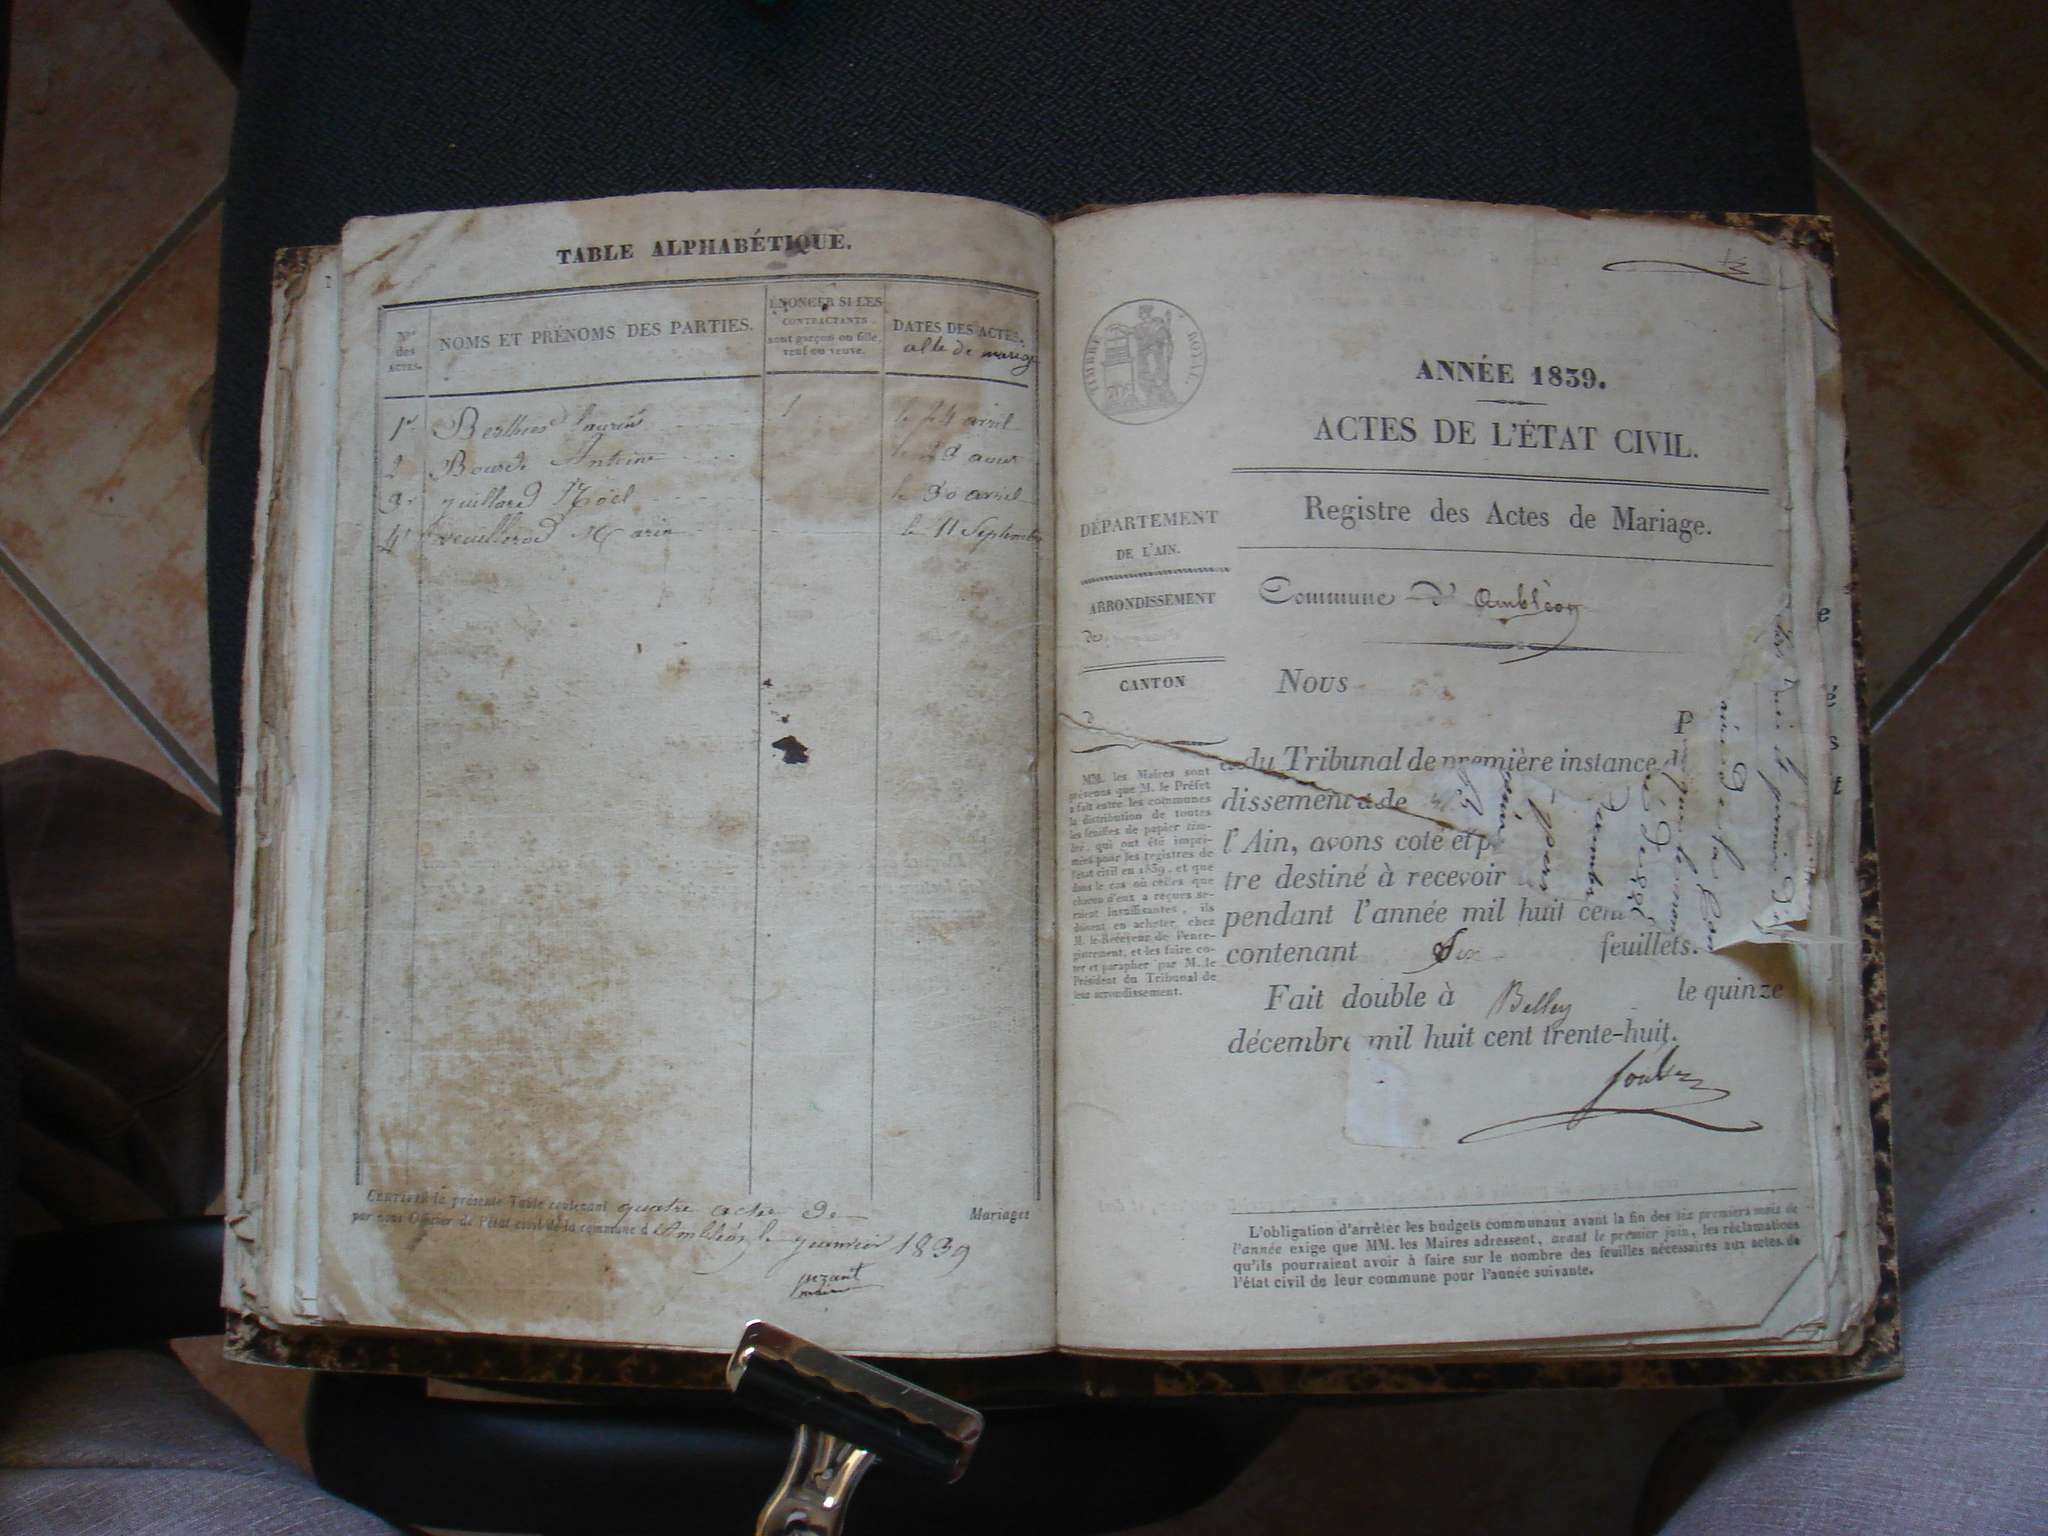 TABLE ALPHABÉTIQUE.
Nos des ACTES.
NOMS ET PRÉNOMS DES PARTIES.
ÉNONCER SI LES
CONTRACTANTS
sont garçon ou fille,
veuf ou veuve.
DATES DES ACTES.
de mariage
1er Laurent le 24 avril
2 Antoine
3 guillard Noël le 30 avril
4 Marin le 11 Septembre
CERTIFIÉE la présente Table contenant quatre actes de Mariages
par nous Officier de l'état civil de la commune d'Ambléon le janvier 1839
ANNÉE 1839.
ACTES DE L'ÉTAT CIVIL.
Registre des Actes de Mariage.
Commune d' ambléon
TIMBRE ROYAL
DÉPARTEMENT
DE L'AIN.
ARRONDISSEMENT
de
CANTON
d
MM. les Maires sont
prévenus que M. le Préfet
a fait entre les communes
la distribution de toutes
les feuilles de papier tim-
bré, qui ont été impri-
mées pour les registres de
l'état civil en 1839, et que
dans le cas où celles que
chacun d'eux a reçues se-
raient insuffisantes, ils
doivent en acheter, chez
M. le Receveur de l'enre-
gistrement, et les faire co-
ter et parapher par M. le
Président du Tribunal de
leur arrondissement.
Nous
P
du Tribunal de première instance d
dissement de
l'Ain, avons coté et p
tre destiné à recevoir
pendant l'année mil huit cen
contenant Six feuillets.
Fait double à Belley le quinze
décembre mil huit cent trente-huit.
L'obligation d'arrêter les budgets communaux avant la fin des six premiers mois de
l'année exige que MM. les Maires adressent, avant le premier juin, les réclamations
qu'ils pourraient avoir à faire sur le nombre des feuilles nécessaires aux actes de
l'état civil de leur commune pour l'année suivante.